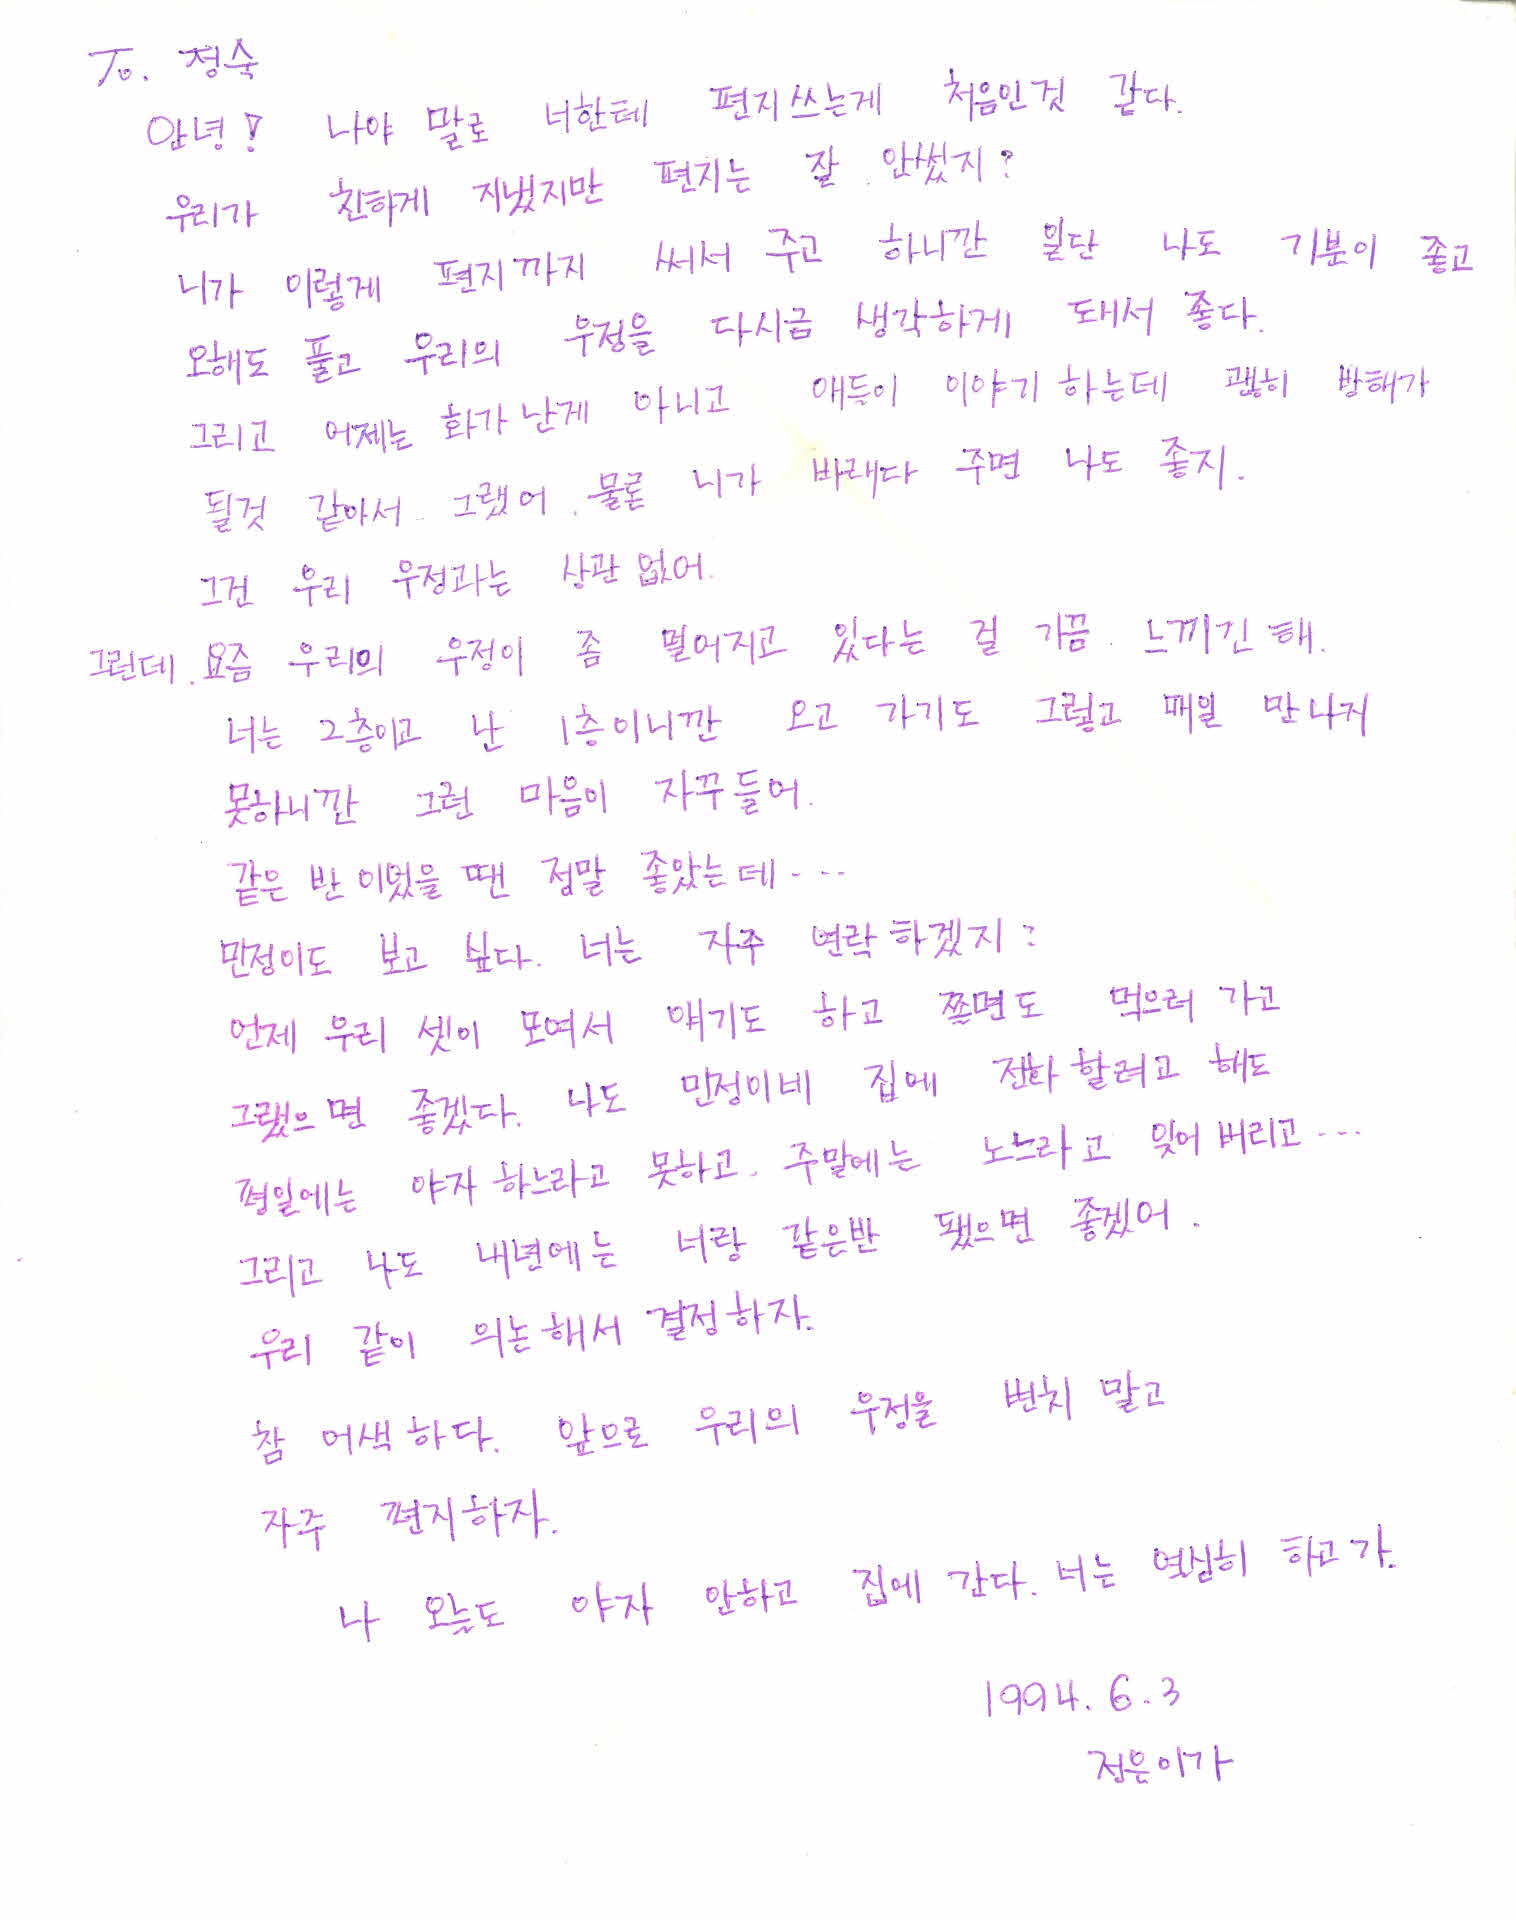 To. 정숙
안녕! 나야 말로 너한테 편지쓰는게 처음인것 같다.
우리가 친하게 지냈지만 편지는 잘 안썼지?
니가 이렇게 편지까지 써서 주고 하니깐 일단 나도 기분이 좋고
오해도 풀고 우리의 우정을 다시금 생각하게 돼서 좋다.
그리고 어제는 화가 난게 아니고 애들이 이야기 하는데 괜히 방해가
될것 같아서 그랬어. 물론 니가 바래다 주면 나도 좋지.
그건 우리 우정과는 상관 없어.
그런데. 요즘 우리의 우정이 좀 멀어지고 있다는 걸 가끔 느끼긴 해.
너는 2층이고 난 1층이니깐 오고 가기도 그렇고 매일 만나지
못하니깐 그런 마음이 자꾸 들어.
같은 반 이었을 땐 정말 좋았는데....
민정이도 보고 싶다. 너는 자주 연락하겠지?
언제 우리 셋이 모여서 얘기도 하고 쫄면도 먹으러 가고
그랬으면 좋겠다. 나도 민정이네 집에 전화 할려고 해도
평일에는 야자 하느라고 못하고. 주말에는 노느라고 잊어 버리고....
그리고 나도 내년에는 너랑 같은반 됐으면 좋겠어.
우리 같이 의논해서 결정하자.
참 어색하다. 앞으로 우리의 우정을 변치 말고
자주 편지하자.
나 오늘도 야자 안하고 집에 간다. 너는 열심히 하고 가.
1994. 6. 3
정은이가